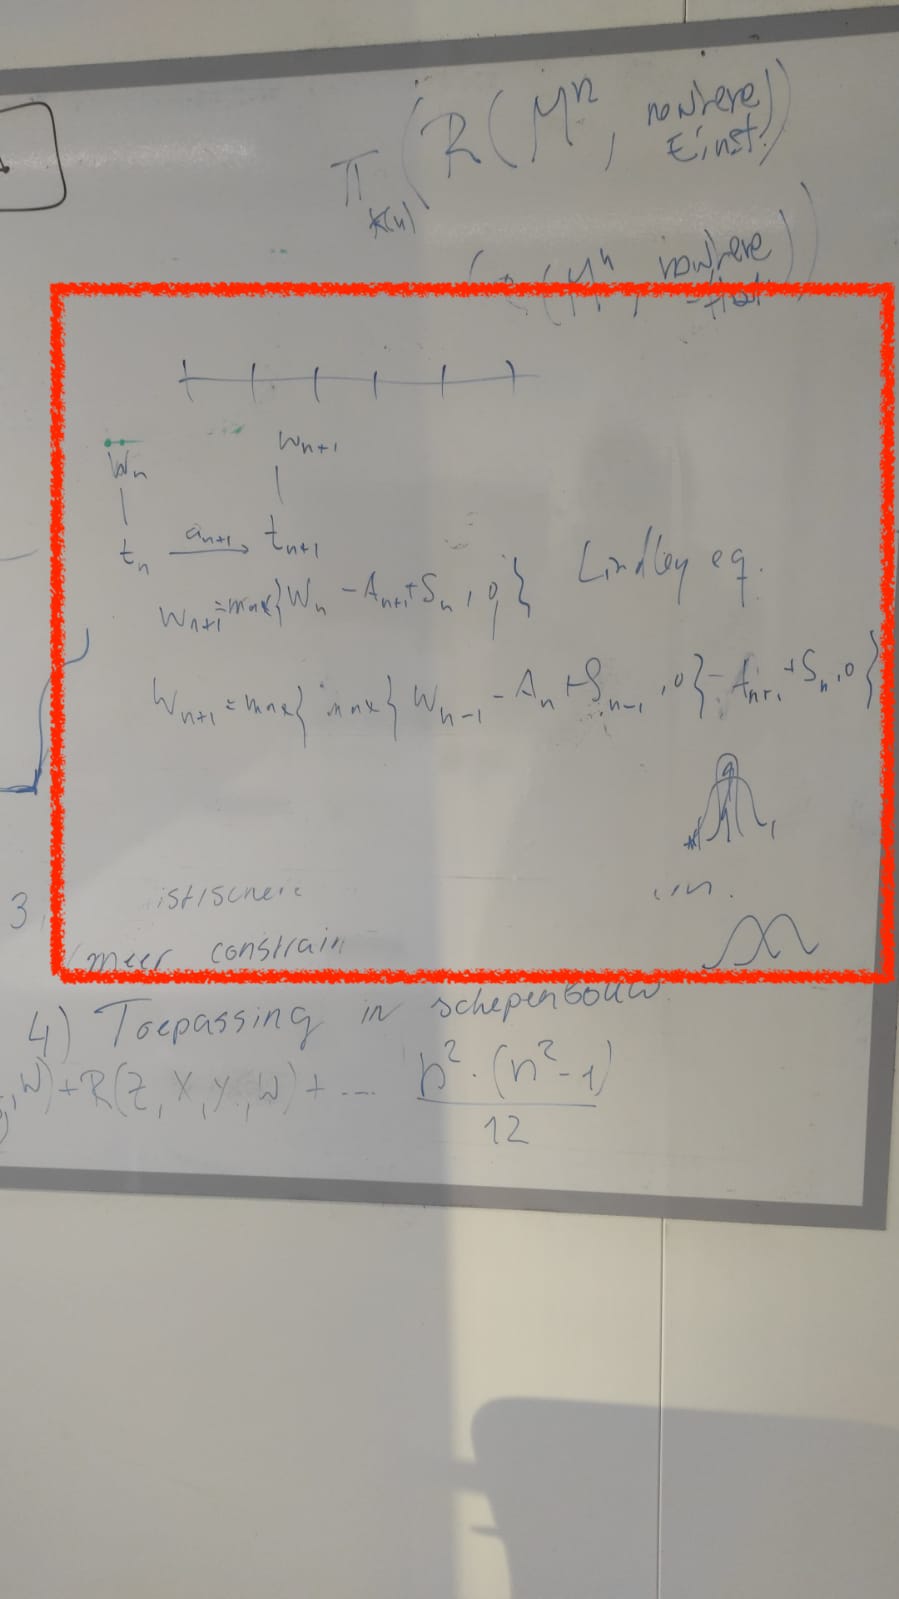 π_{k(n)} (R(M^n, nowhere Einst.))
(M^n, nowhere
W_n W_{n+1}
t_n a_{n+1} → t_{n+1}
W_{n+1} = max{W_n - A_{n+1} + S_n, 0} Lindley eq.
W_{n+1} = max{max{W_{n-1} - A_n + S_{n-1}, 0} - A_{n+1} + S_n, 0}
3
meer constrain
4) Toepassing in schepenbouw
, W) + R(Z, X, Y, W) + ... \frac{n^2 · (n^2 - 1)}{12}